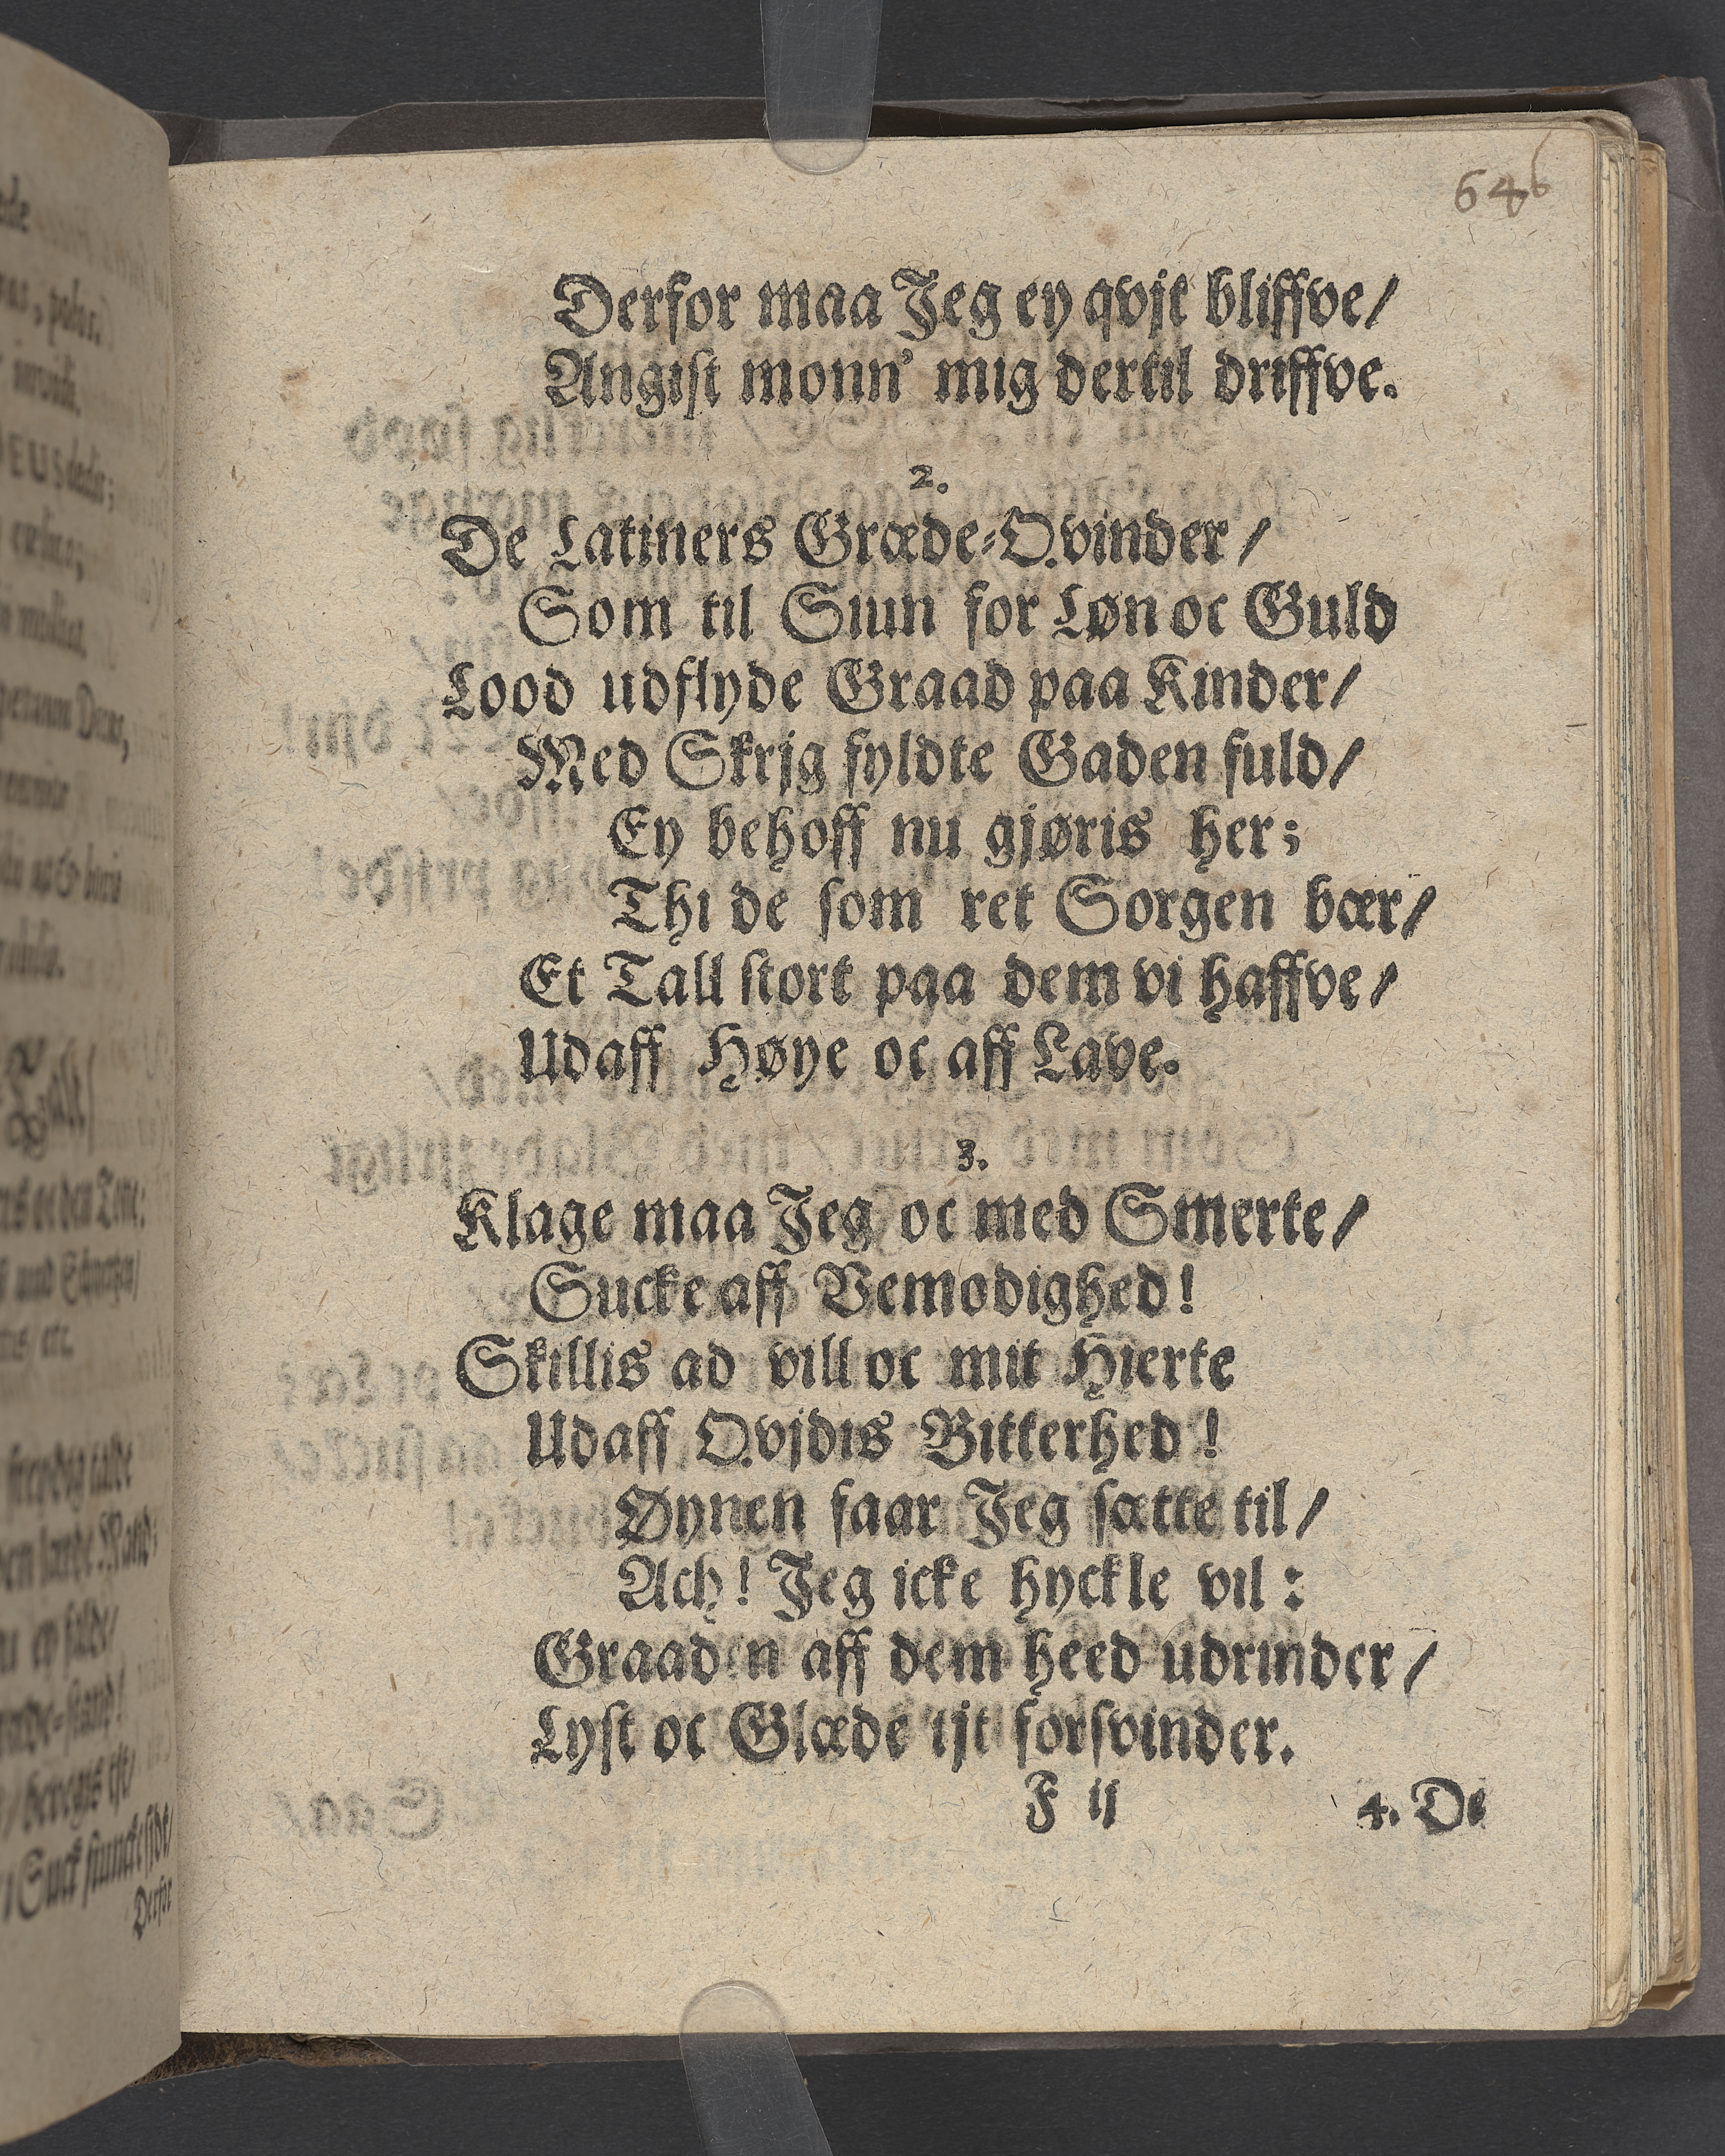 646
Derfor maa Jeg ey qvjt bliffve/
Angist monn' mig dertil driffve.
2.
De Latiners Græde-Qvinder/
Som til Siun for Løn oc Guld
Lood udflyde Graad paa Kinder/
Med Skrjg fyldte Gaden fuld/
Ey behoff nu gjøris her;
Thi de som ret Sorgen bær/
Et Tall stort paa dem vi haffve/
Udaff Høye oc aff Lave.
3.
Klage maa Jeg oc med Smerte/
Sucke aff Vemodighed!
Skillis ad vill oc mit Hierte
Udaff Qvjdis Bitterhed!
Øynen faar Jeg sætte til/
Ach! Jeg icke hyckle vil:
Graaden aff dem heed udrinder/
Lyst oc Glæde ijt forsvinder.
F ij
4. De